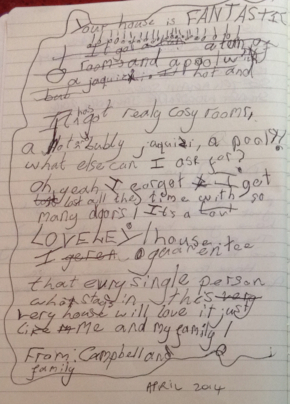 Your house is FANTASTIC
It got a
rooms and a pool with
a jaquizi, hot and
but
It has got realy cosy rooms,
a hot bubly jaquzi, a pool?!
what else can I ask for?
Oh yeah, I forgot I get
lost all the time with so
many doors! It's a
LOVELEY house
I garentee
that every single person
who stays in this very
very house will love it just
like me and my family!
From: Campbell and
family
APRIL 2014